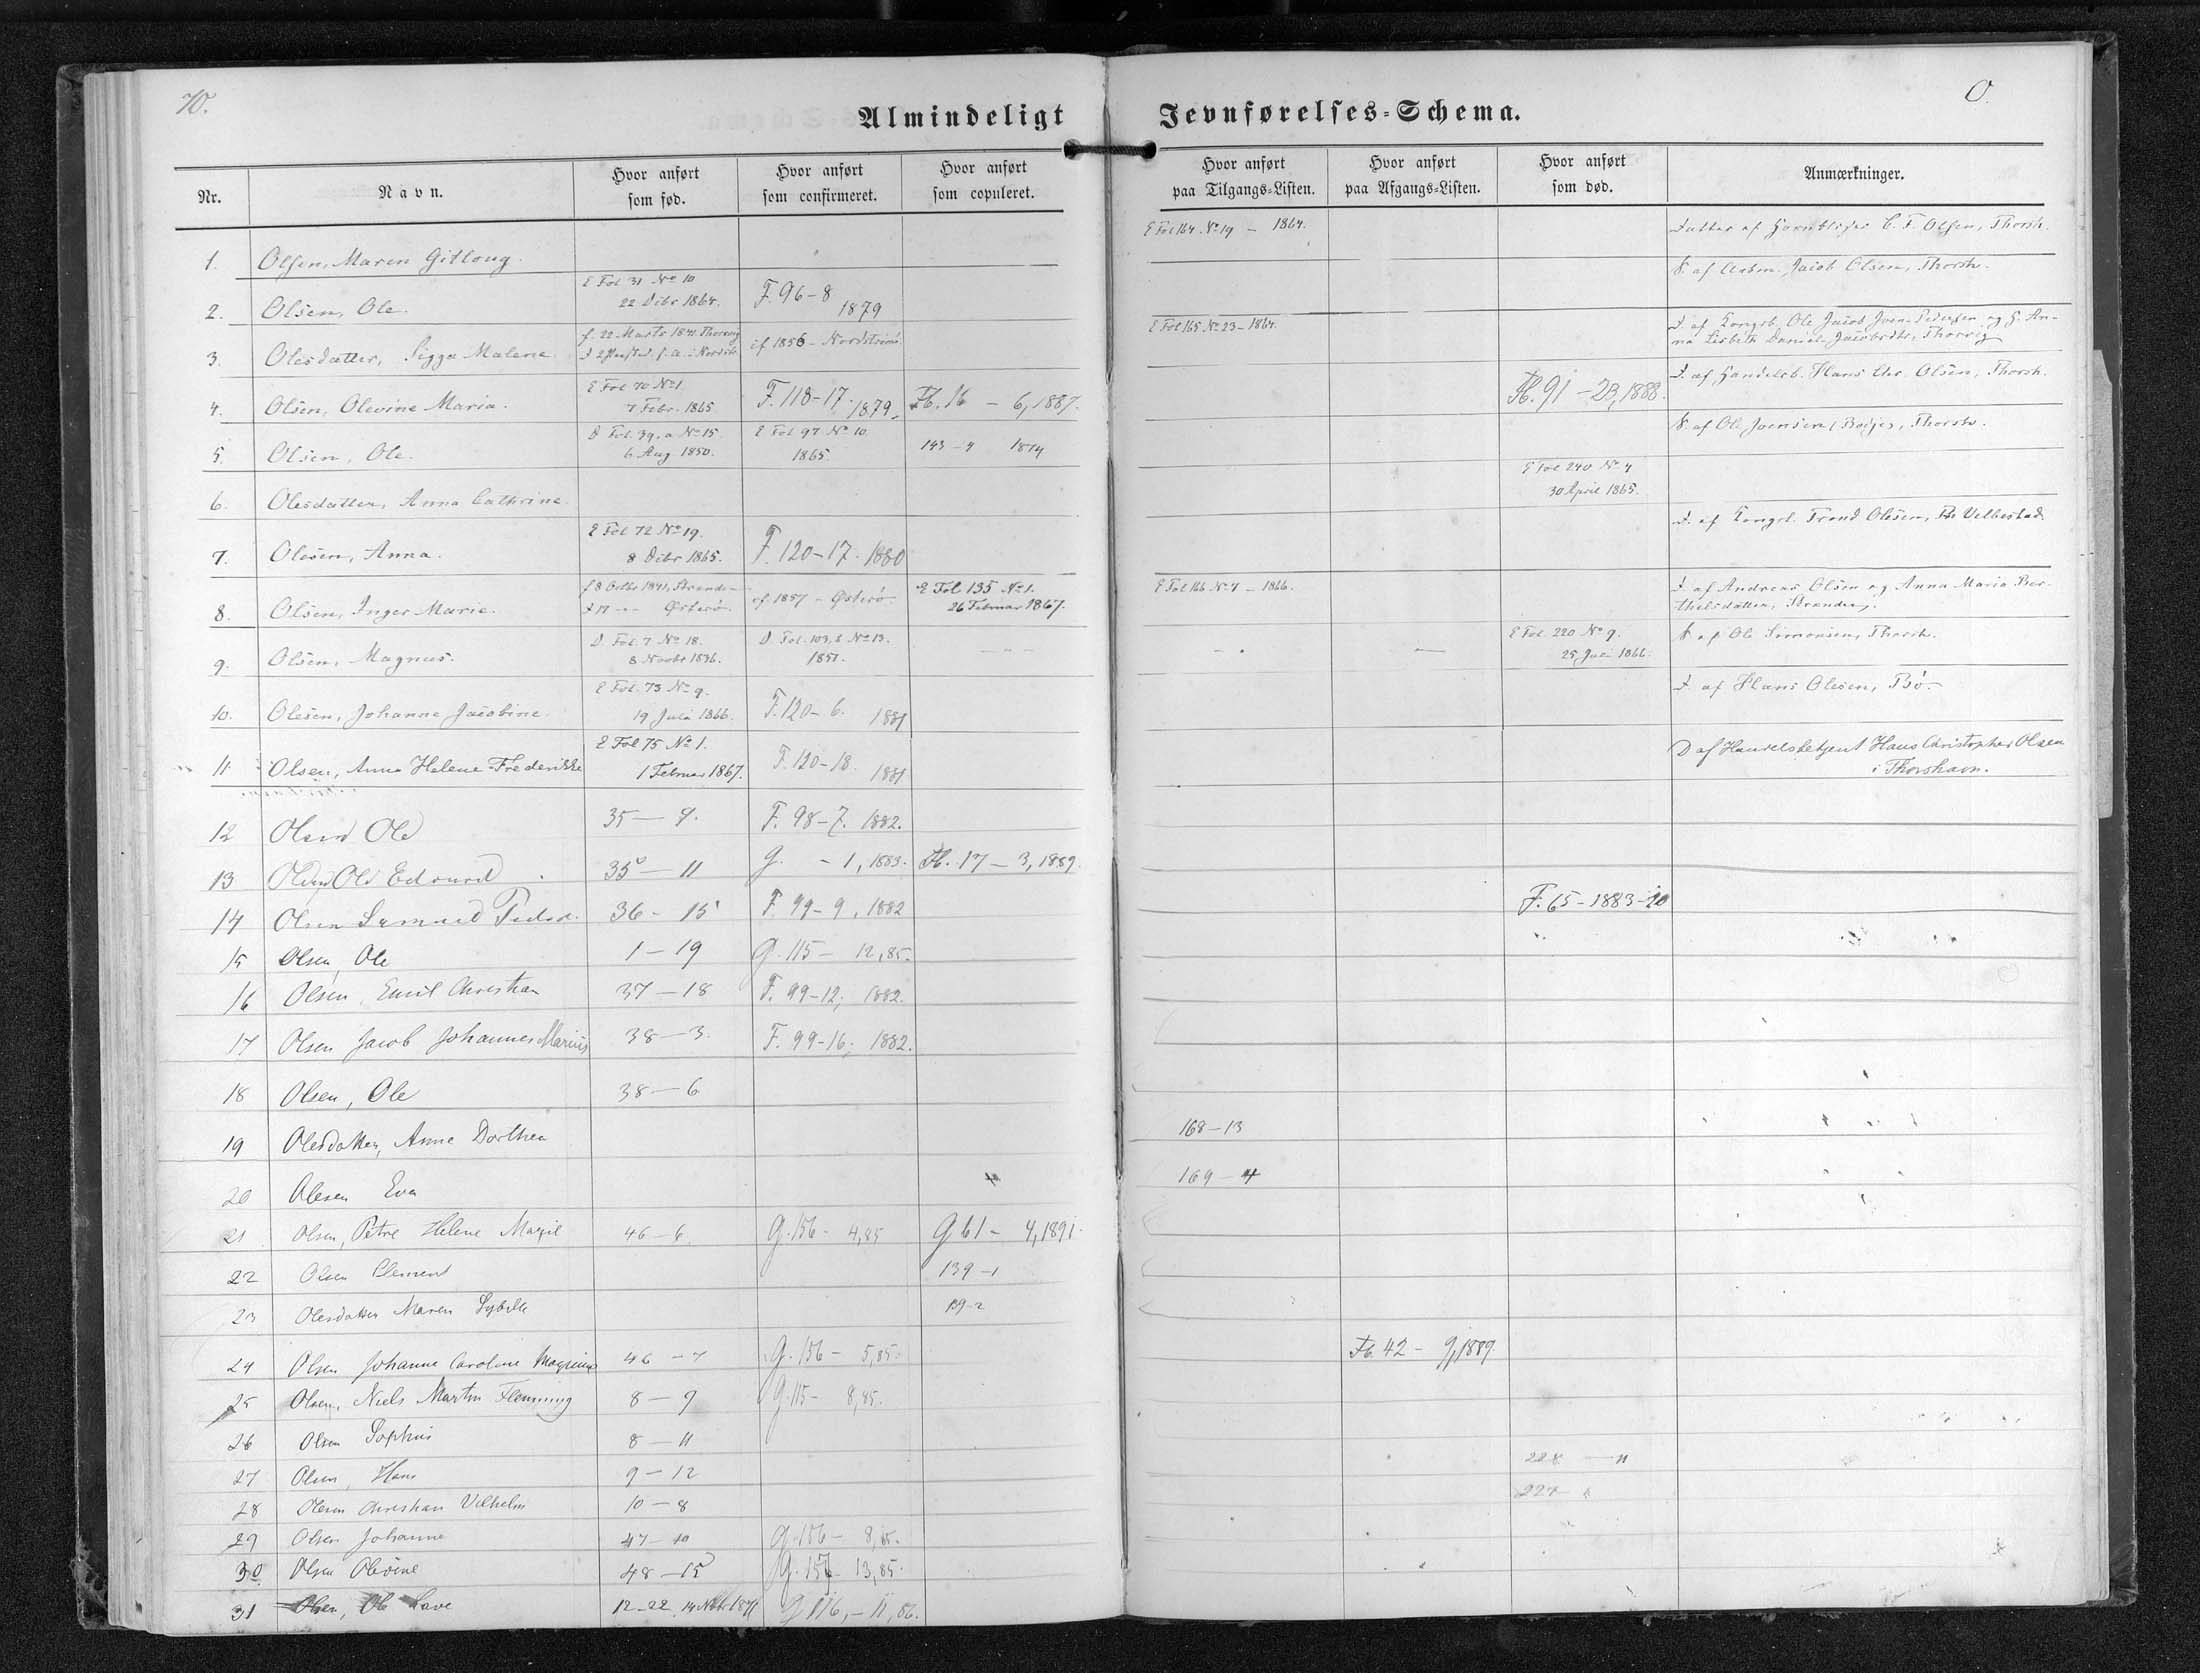 70.
Almindeligt Jevnførelses=Schema.
O.
Nr.
Navn.
Hvor anført som fød.
Hvor anført som confirmeret.
Hvor anført som copuleret.
Hvor anført paa Tilgangs=Listen.
Hvor anført paa Afgangs=Listen.
Hvor anført som død.
Anmærkninger.
1. Olsen, Maren Gitloug. E Fol 164. No 19 – 1864. Datter af C. F. Olsen, Thorsh.
2. Olsen, Ole. E Fol 31 No 10
22 Decbr 1864. F. 96–8 1879 S. af Jacob Olsen, Thorsh.
3. Olesdatter, Sigga Malene f. 22. Marts 1841. Thorvig
cf 1856 – Nordstrømø E Fol 165. No 23 – 1864. D. af Kongsb. Ole Jacob Joen-Pedersen og H. An-
na Lisbeth Daniel-Jacobsdtr, Thorvig
4. Olsen, Olevine Maria. E Fol 70 No 1.
7 Febr. 1865 F. 118–17. 1879. Fb. 16 – 6, 1887. Fb. 91 – 23, 1888. D. af Handelsb. Hans Chr. Olsen, Thorsh.
5. Olsen, Ole. D Fol. 39. a No 15.
6 Aug. 1850. E Fol 97 No 10.
1865. 143–4 1874 S. af Ole Joensen, Thorsh.
6. Olesdatter, Anna Cathrine. E Fol 240 No 4
30 April 1865.
7. Olesen, Anna. E Fol 72 No 19.
8 Decbr 1865. F. 120–17. 1880 D. af Kongsb. Trond Olesen, Velbestad
8. Olsen, Inger Marie. f 8 Octbr 1841,
Østerø. cf. 1857 – Østerø. E Fol 135 No 1.
26 Februar 1867. E Fol 166 No 4 – 1866. D. af Andreas Olsen og Anna Maria Ber-
thelsdatter, Strænder.
9. Olsen, Magnus. D. Fol. 7 No 18.
8 Novbr 1836. D. Fol. 103, b No 13.
1851. E Fol. 220 No 9.
25 Juli 1866. S. af Ole Simonsen, Thorsh.
10. Olesen, Johanne Jacobine. E Fol. 73 No 9.
19 Juli 1866. F. 120–6. 1881 D. af Hans Olesen, Bø.
11. Olsen, Anna Helene Frederikke E Fol 75 No 1.
1 Februar 1867. F. 120–18. 1881 D af Handelsbetjent Hans Christopher Olsen
i Thorshavn.
12 Olsen Ole 35 – 9. F. 98–7. 1882.
13 Olsen, Ole Edvard 35 – 11 G. – 1, 1883. Fb. 17 – 3, 1889.
14 Olsen Samuel 36 – 15 F. 99–9, 1882 F. 65–1883–20
15 Olsen, Ole 1 – 19 G. 115 – 12, 85.
16 Olsen, Emil Christian 37 – 18 F. 99–12, 1882.
17 Olsen Jacob Johannes Marius 38 – 3. F. 99–16, 1882.
18 Olsen, Ole 38 – 6
19 Olesdatter, Anne Dorthea 168–13
20 Olesen Eva 169–4
21 Olsen, Petre Helene Margit 46–6. G. 156 – 4, 85 G 61 – 4, 1891.
22 Olsen Clement 139–1
23 Olesdatter Maren Sybille 139–2
24 Olsen Johanne Caroline 46 – 7 G. 156 – 5, 85. Fb. 42 – 9, 1889.
25 Olsen, Niels Martin Flemming 8 – 9 G. 115 – 8, 85.
26 Olsen Sophus 8 – 11
27 Olsen, Hans 9 – 12 228 – 11
28 Olesen Christian Vilhelm 10 – 8 227
29 Olsen Johanne 47 – 10 G. 156 – 8, 85.
30 Olsen Olevine 48 – 15 G. 157 13, 85.
31 Olsen, Ole 12–22. 14 Novbr 1871 G 116, – 11, 86.